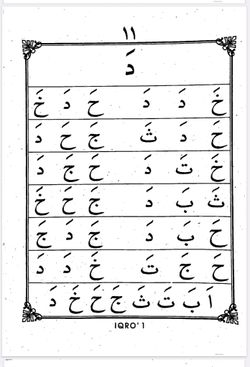 ١١
دَ
خَ دَ دَ حَ دَ خَ
حَ دَ ثَ جَ حَ دَ
خَ تَ دَ حَ جَ دَ
ثَ بَ دَ جَ حَ خَ
حَ بَ دَ جَ دَ جَ
حَ جَ تَ خَ دَ دَ
اَ بَ تَ ثَ جَ حَ خَ دَ
IQRO' 1